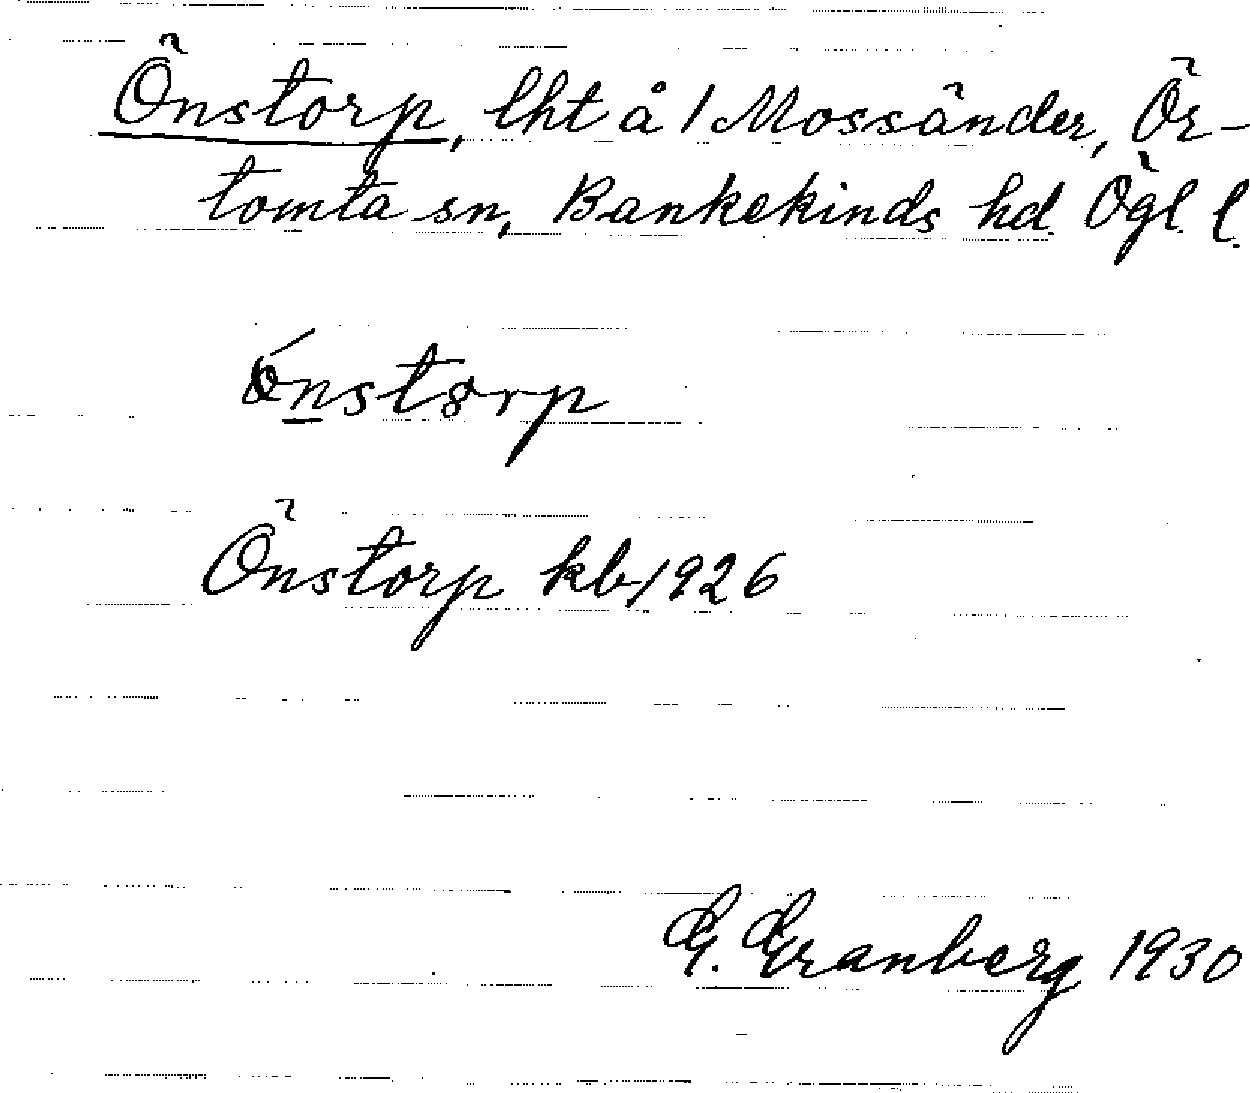 Önstorp, lht å 1 Mossänder, Ör-
tomta sn, Bankekinds hd Ögl l.
Önstorp kb 1926
G. Granberg 1930